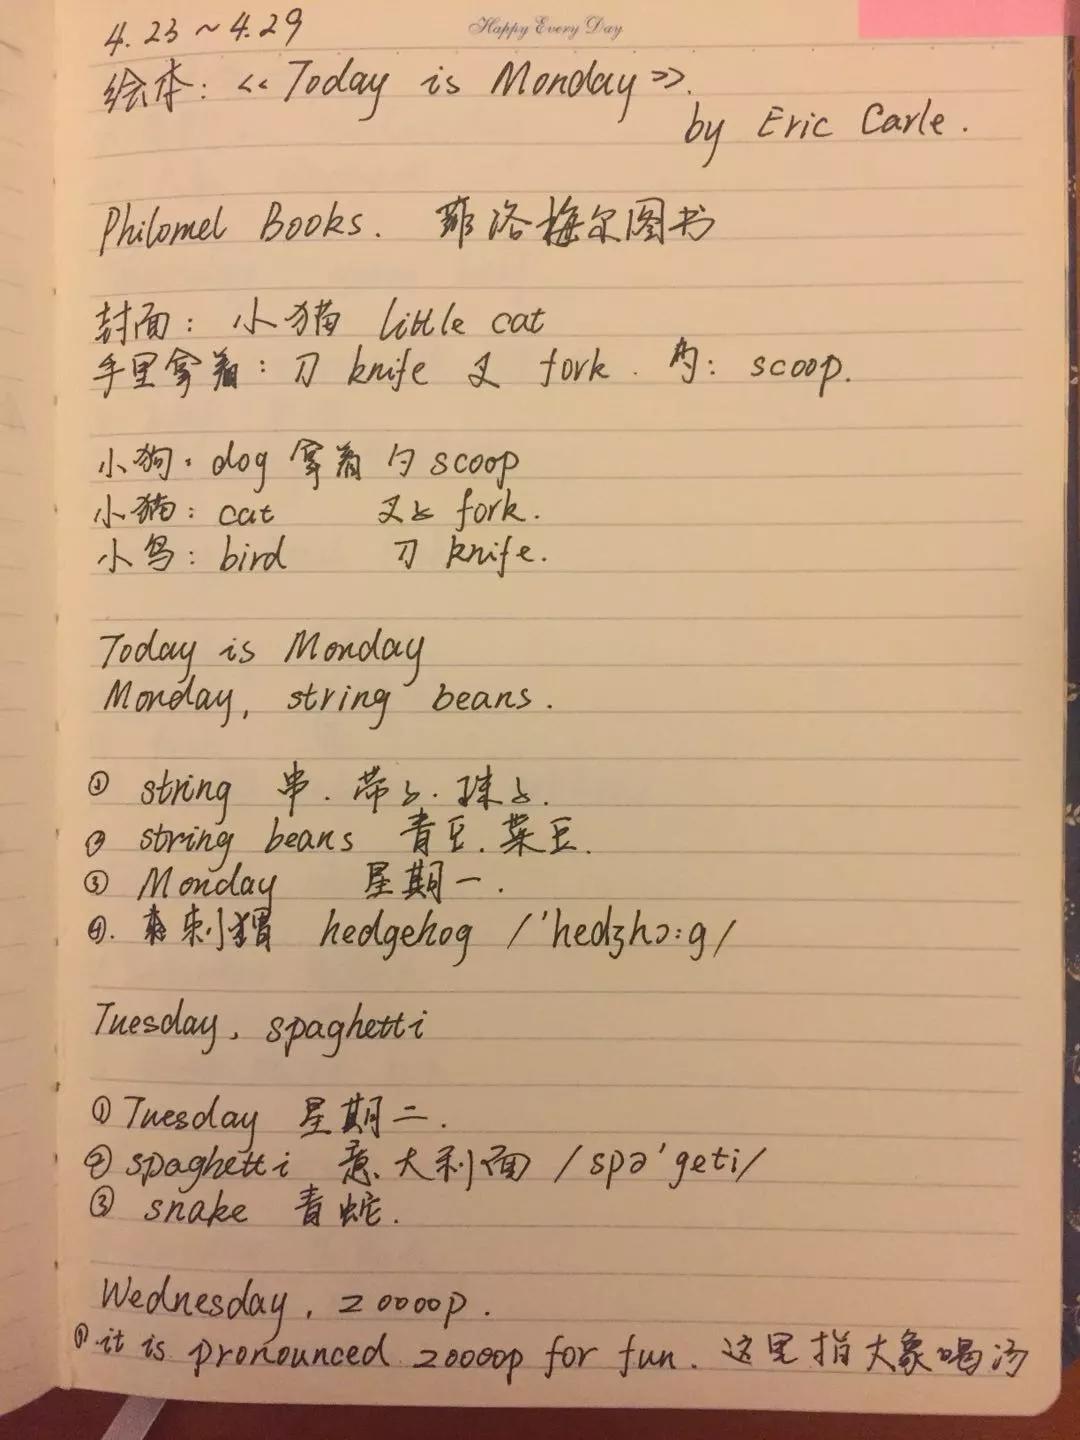 Happy Every Day
4.23~4.29
绘本:《Today is Monday》.
by Eric Carle.
Philomel Books. 菲洛梅尔图书
封面: 小猫 little cat
手里拿着: 刀 knife 叉 fork. 勺: scoop.
小狗: dog 拿着 勺 scoop
小猫: cat 叉子 fork.
小鸟: bird 刀 knife.
Today is Monday
Monday, string beans.
① string 串. 带子. 珠子.
② string beans 青豆. 菜豆.
③ Monday 星期一.
④. 刺猬 hedgehog /'hedʒhɔ:g/
Tuesday, spaghetti
① Tuesday 星期二.
② spaghetti 意大利面 /spə'geti/
③ snake 青蛇.
Wednesday, zoooop.
①. it is pronounced zoooop for fun. 这里指大象喝汤